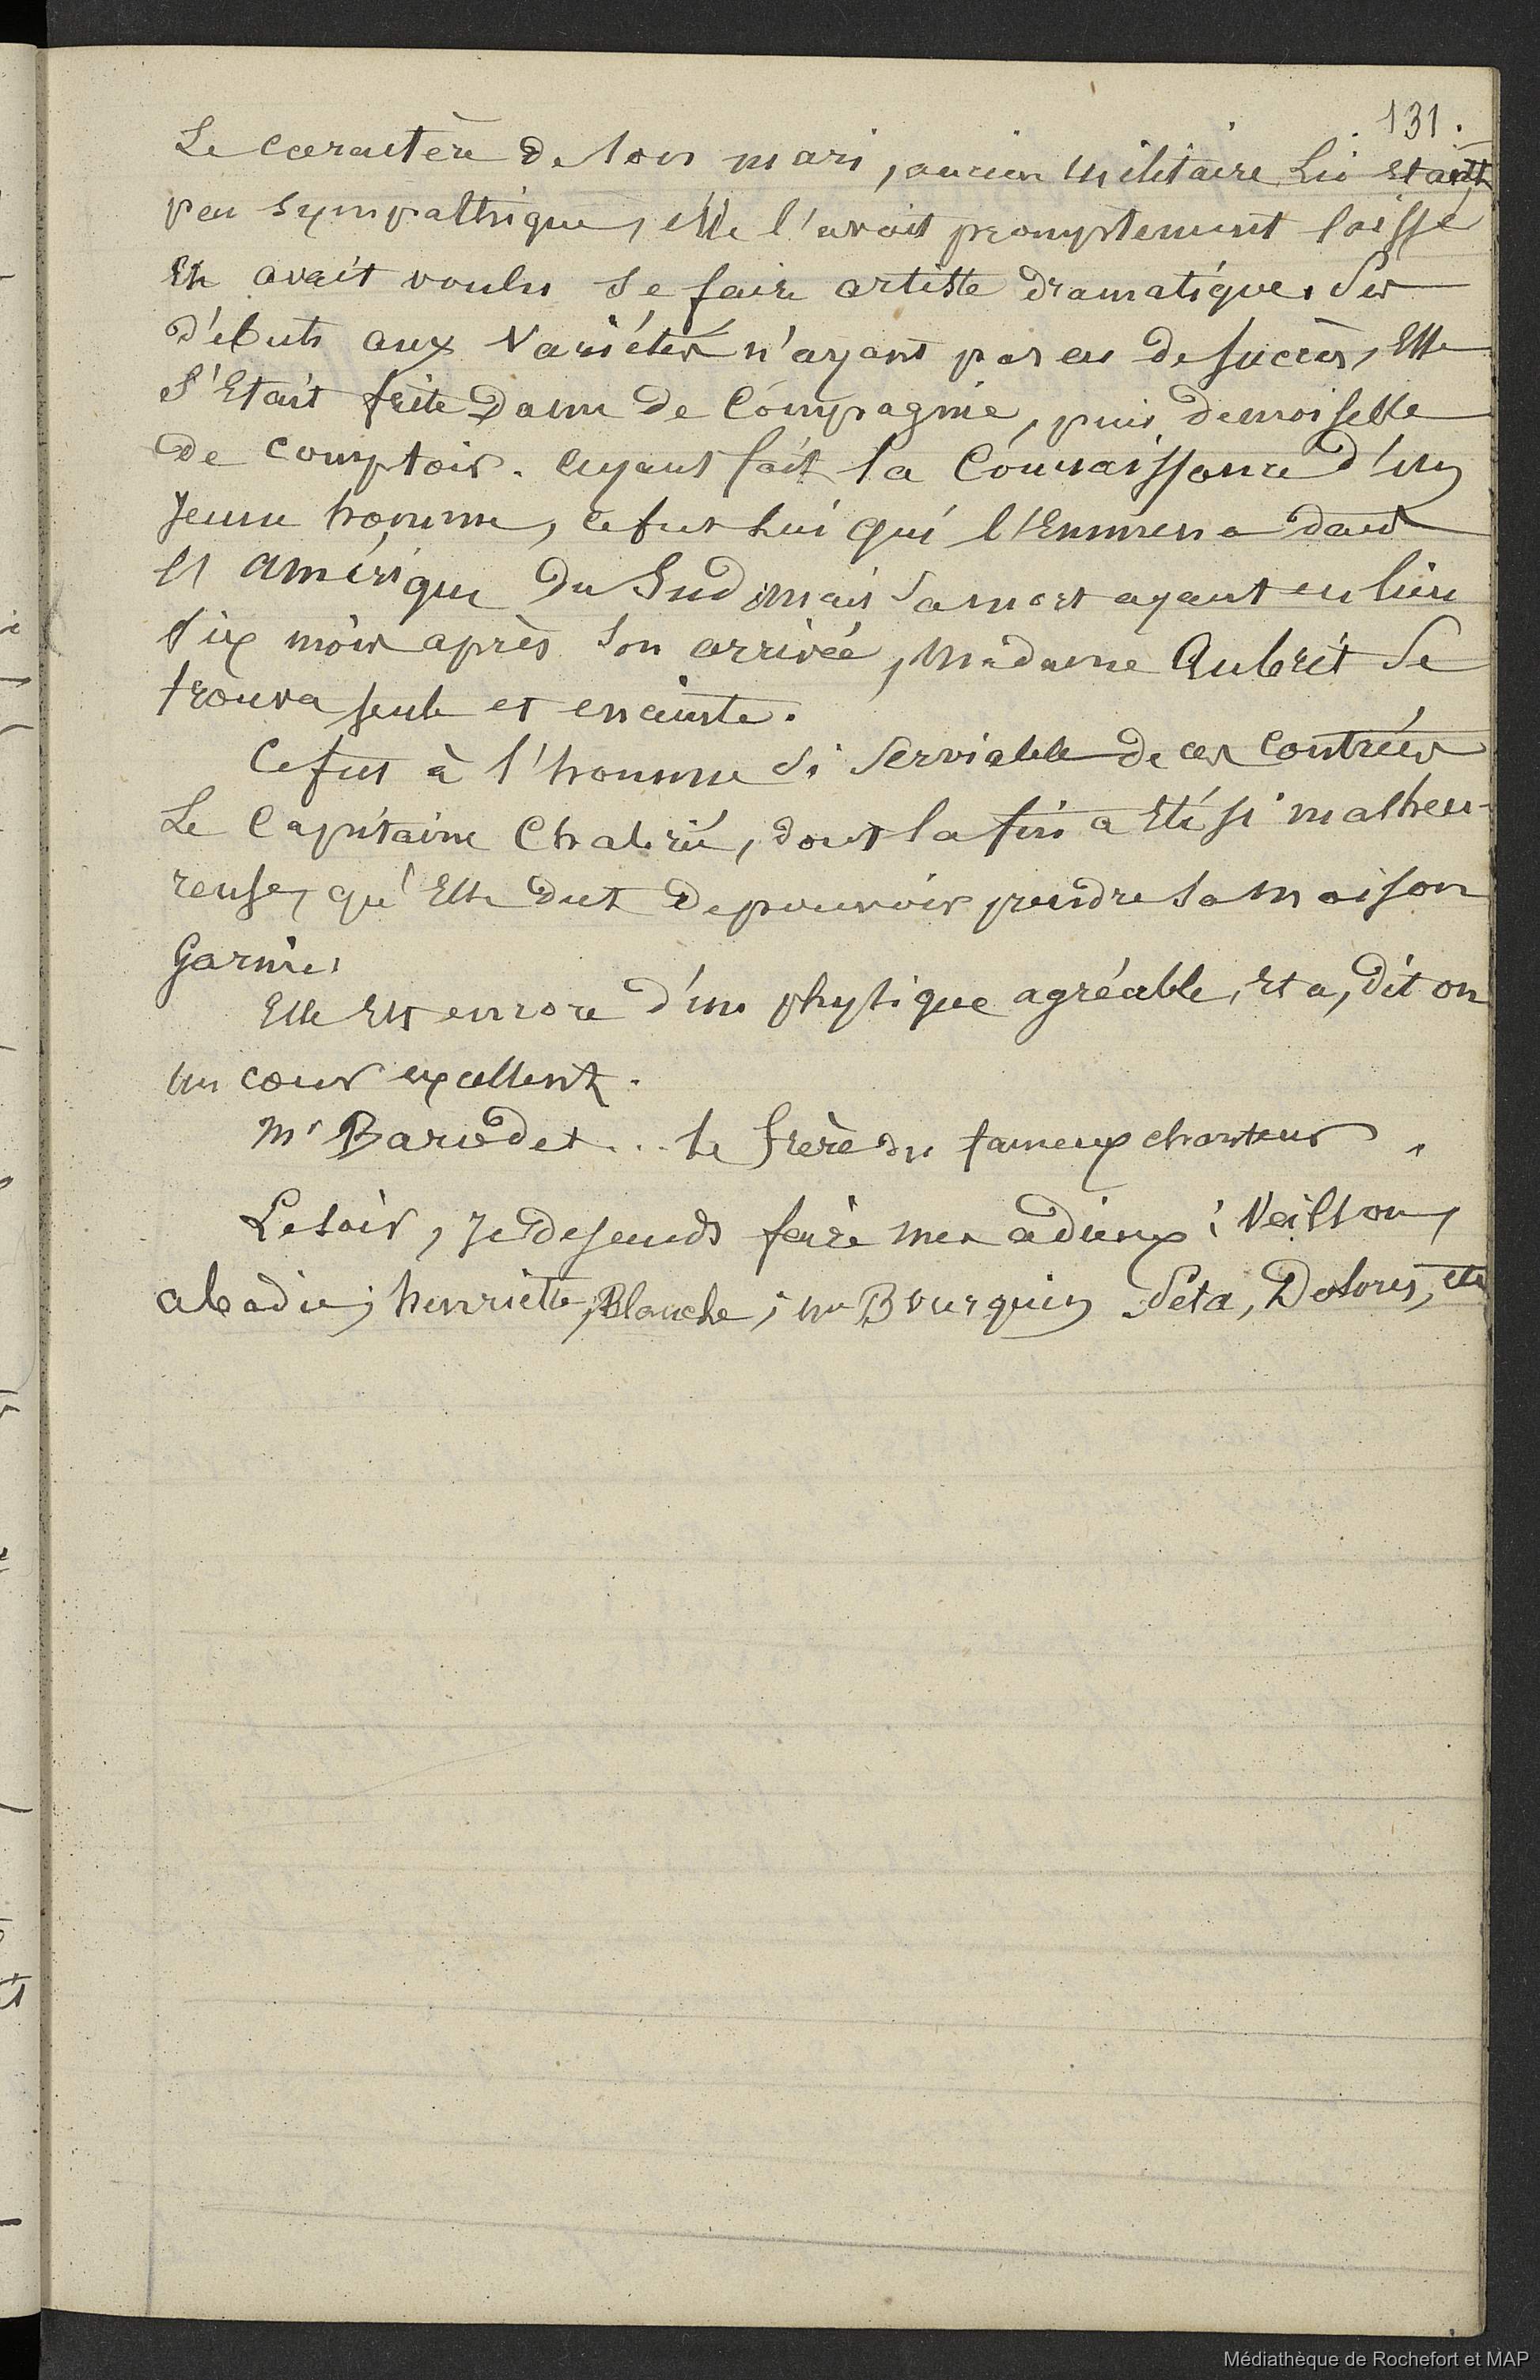 131.
Le caractère de son mari, ancien militaire Lui Etait
peu sympathique, elle l'avait promptement laissé
Et avait voulu se faire artiste dramatique. Ses
débuts aux Variétés n'ayant pas eu de succès, Elle
s'Etait faite Dame de Compagnie, puis demoiselle
de comptoir. ayant fait la Connaissance d'un
Jeune homme, ce fut lui qui l'Emmena dans
l'amérique Du Sud mais sa mort ayant eu lieu
six mois après son arrivée, Madame Aubrit se
trouva seule et enceinte.
Ce fut à l'homme si serviable de ces contrées
Le Capitaine Chabrié, dont la fin a Eté si malheu-
reuse, qu'Elle dut de pouvoir prendre sa maison
Garnie.
Elle Est encore d'un physique agréable, Et a, dit on
un cœur excellent.
Mr Barodet .. le frère du fameux chanteur.
Le soir, Je descends faire mes adieux: Veillon,
abadie, henriette, Blanche; Mr Bourquin Peta, Dolores, etc
Médiathèque de Rochefort et MAP